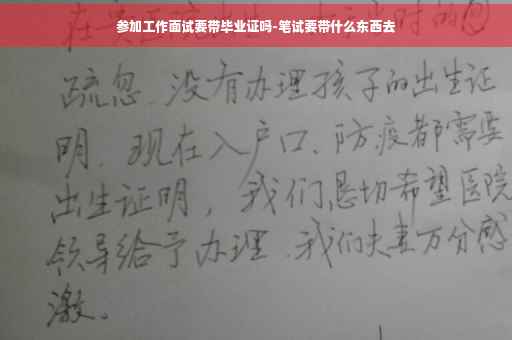 参加工作面试要带毕业证吗-笔试要带什么东西去
疏忽、没有办理孩子的出生证
明、现在入户口、防疫都需要
出生证明，我们恳切希望医院
领导给予办理、我们夫妻万分感
激。